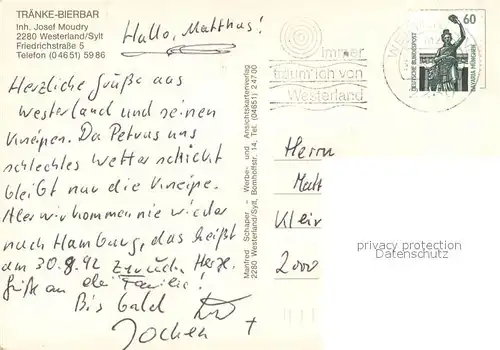 TRÄNKE-BIERBAR
Inh. Josef Moudry
2280 Westerland/Sylt
Friedrichstraße 5
Telefon (04651) 5986
Hallo, Matthias!
Herzliche Grüße aus
Westerland und seinen
Kneipen. Da Petrus uns
schlechtes Wetter schickt
bleibt nur die Kneipe.
Aber wir kommen nie wieder
nach Hamburg, das heißt
am 30.8.92 zurück. Herzl.
Grüße an die Familie!
Bis bald
Jochen +
Manfred Schaper - Werbe- und Ansichtskartenverlag
2280 Westerland/Sylt, Bomhoffstr. 14, Tel. (04651) 24700
immer
träum' ich von
Westerland
60
DEUTSCHE BUNDESPOST
BAVARIA MÜNCHEN
Herrn
Matt
Klei
2000
privacy protection
Datenschutz